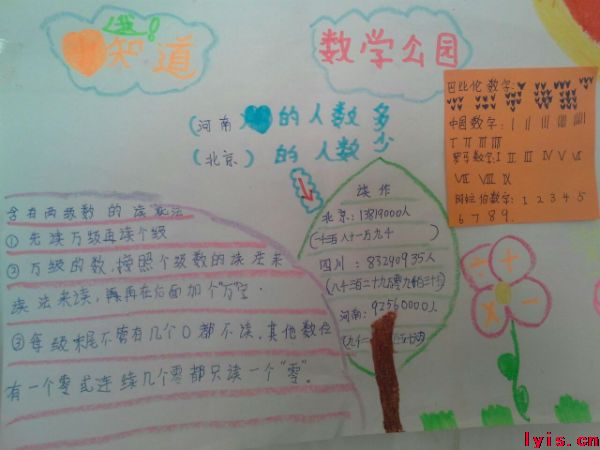 我知道
数学公园
(河南) 的人数多
(北京) 的人数少
含有两级数的读法
① 先读万级再读个级
② 万级的数,按照个级数的读法来
读法来读,再在后面加个"万"字.
③ 每级末尾不管有几个0都不读,其他数位
有一个零或连续几个零都只读一个"零"。
读作
北京:13819000人
四川:83290935人
河南:92560000人
巴比伦数字:
中国数字:
罗马数字:Ⅰ Ⅱ Ⅲ Ⅳ Ⅴ Ⅵ
Ⅶ Ⅷ Ⅸ
阿拉伯数字:1 2 3 4 5
6 7 8 9.
÷ + × −
lyis.cn